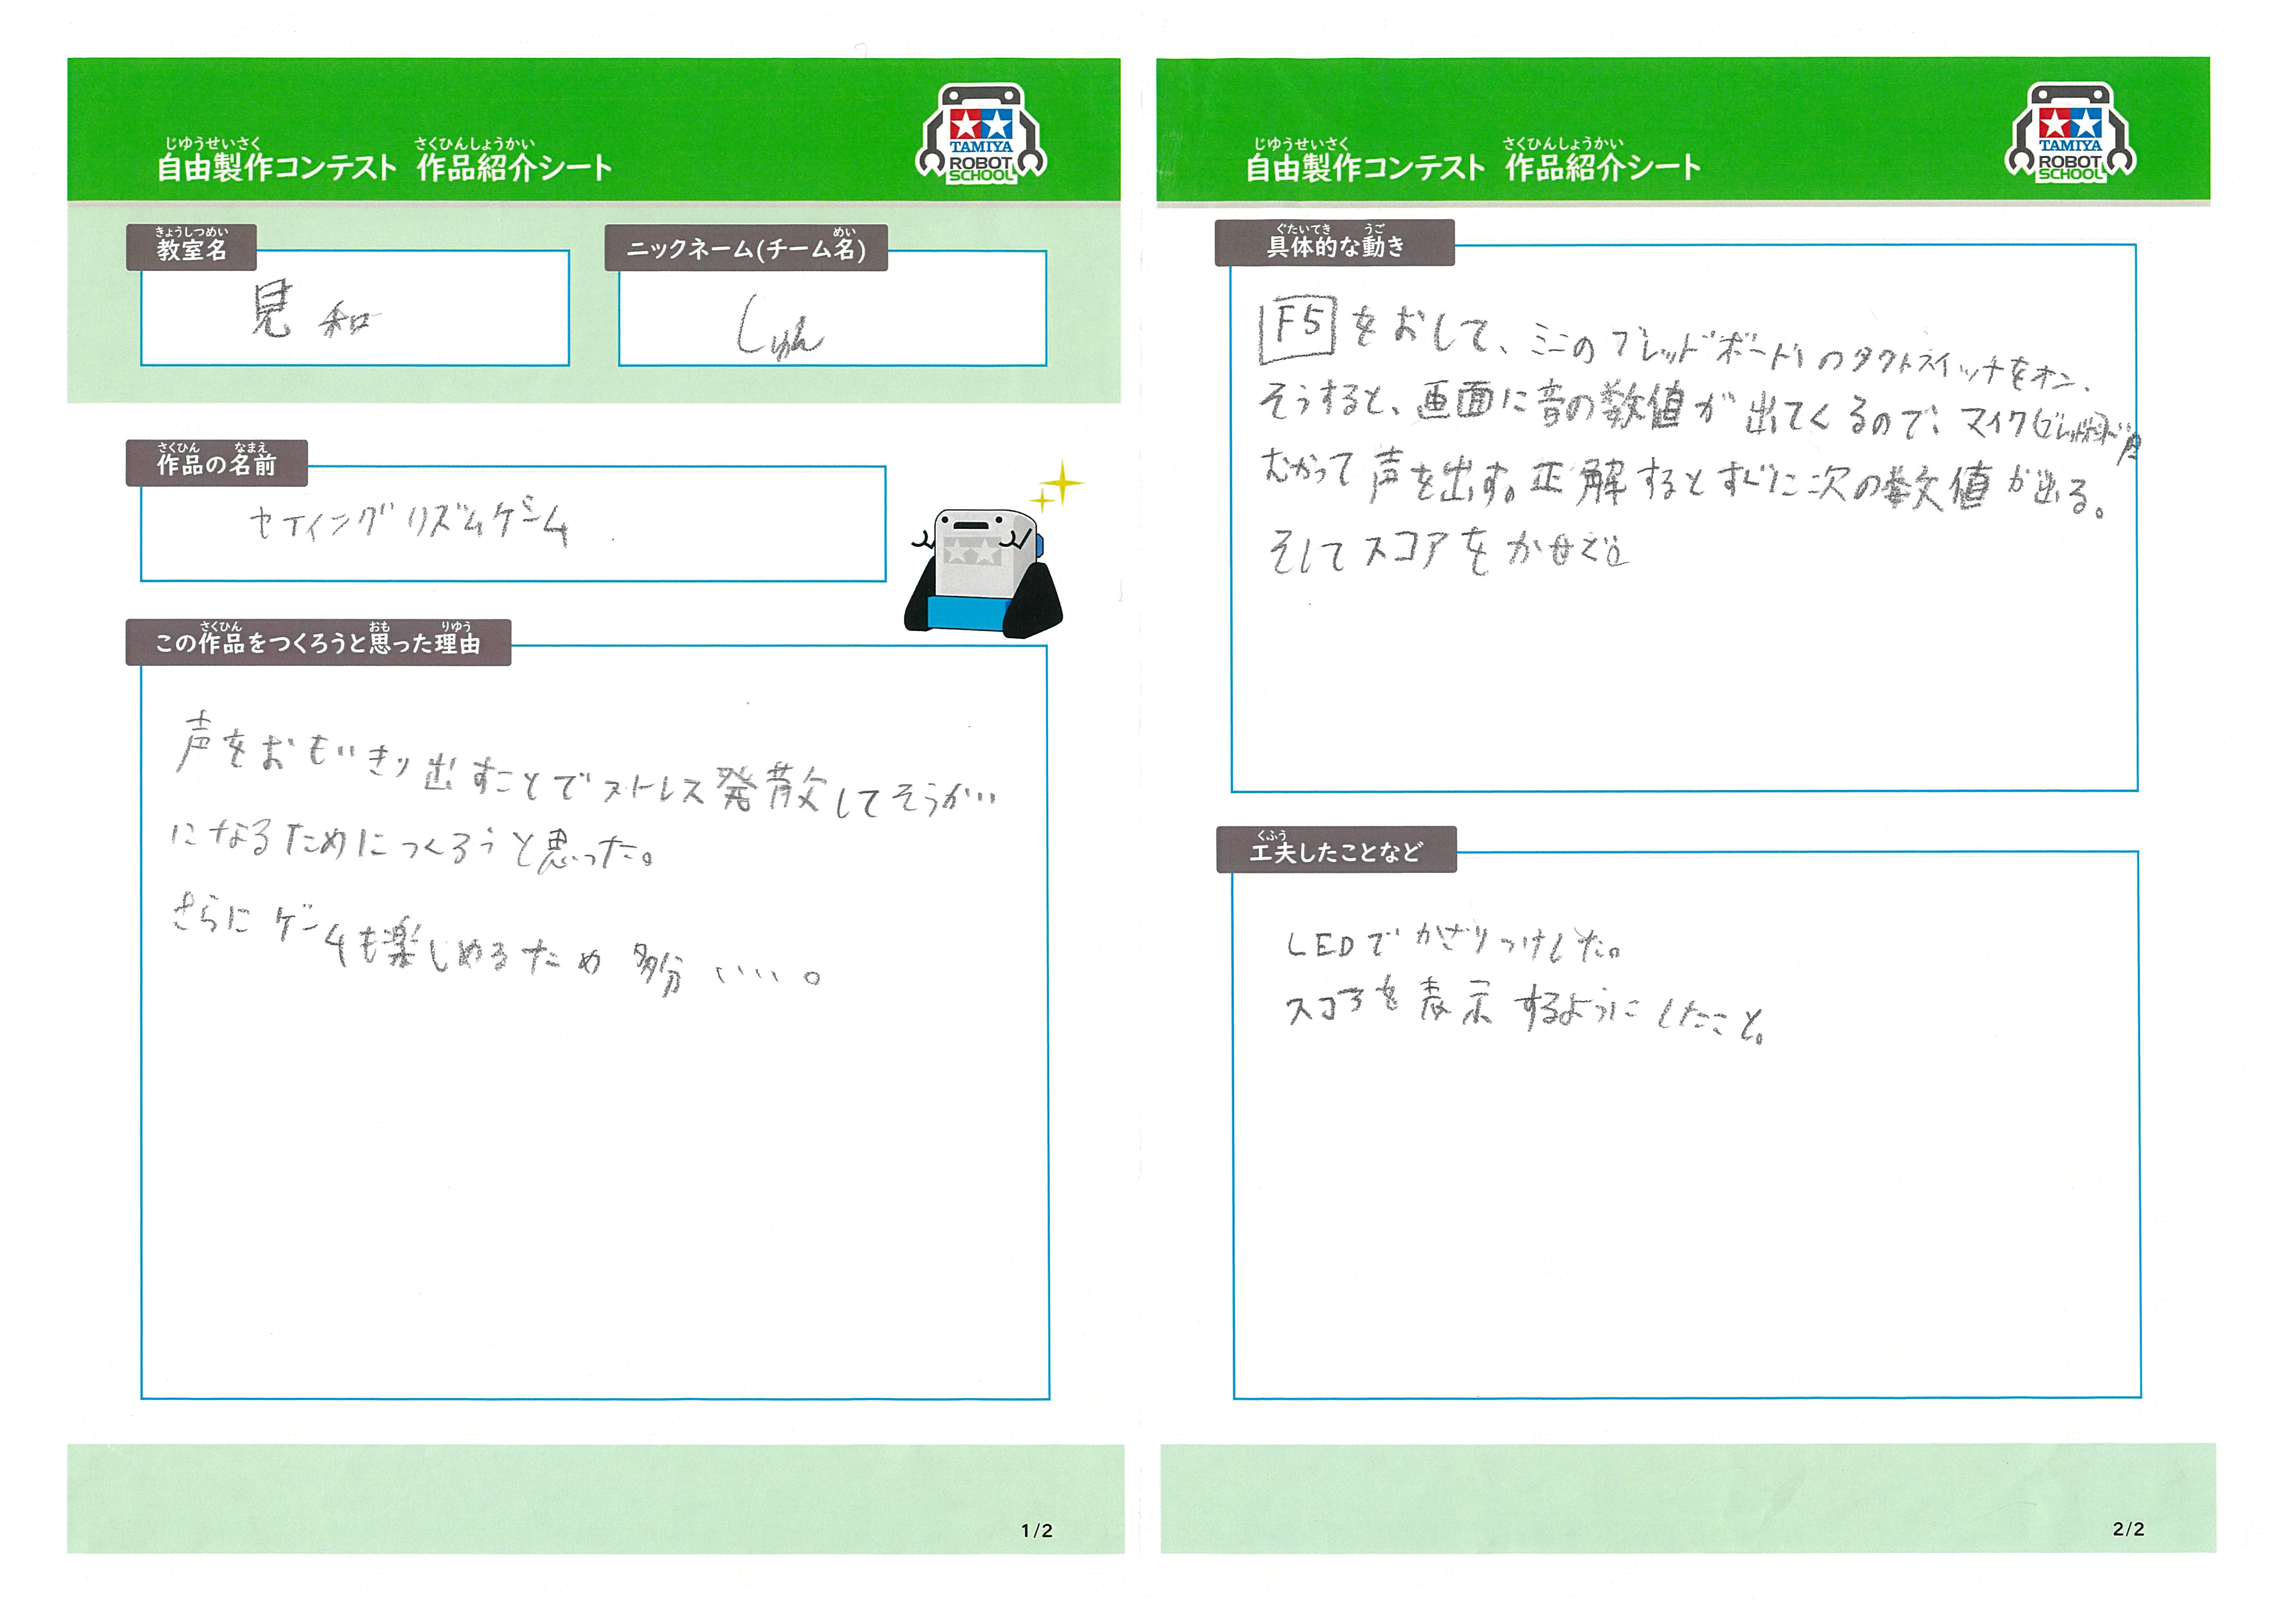 じゆうせいさく さくひんしょうかい
自由製作コンテスト 作品紹介シート
TAMIYA
ROBOT
SCHOOL
きょうしつめい
教室名
見和
めい
ニックネーム(チーム名)
しゅん
さくひん なまえ
作品の名前
セイイングリズムゲーム
さくひん おも りゆう
この作品をつくろうと思った理由
声をおもいきり出すことでストレス発散してそうかい
になるためにつくろうと思った。
さらにゲームも楽しめるため多分…。
1/2
じゆうせいさく さくひんしょうかい
自由製作コンテスト 作品紹介シート
TAMIYA
ROBOT
SCHOOL
ぐたいてき うご
具体的な動き
F5をおして、ミニのブレッドボードのタクトスイッチをオン、
そうすると、画面に音の数値が出てくるので、マイク
むかって声を出す。正解するとすぐに次の数値が出る。
そしてスコアをかせぐ。
くふう
工夫したことなど
LEDでかざりつけした。
スコアを表示するようにしたこと。
2/2